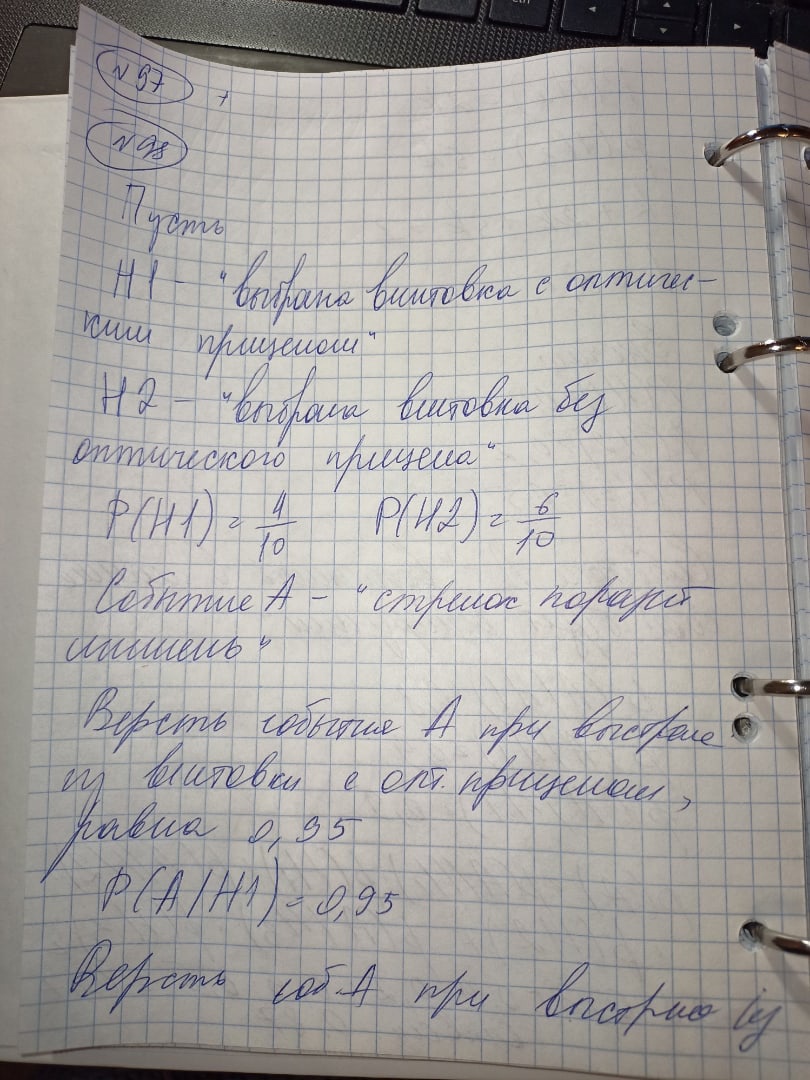 №97
№98
Пусть
H1 - "выбрана винтовка с оптичес-
ким прицелом"
H2 - "выбрана винтовка без
оптического прицела"
P(H1) = 4/10 P(H2) = 6/10
Событие A - "стрелок поразит
мишень"
Версть события A при выстреле
из винтовки с опт. прицелом,
равна 0,95
P(A/H1) = 0,95
Версть соб. A при выстрле из